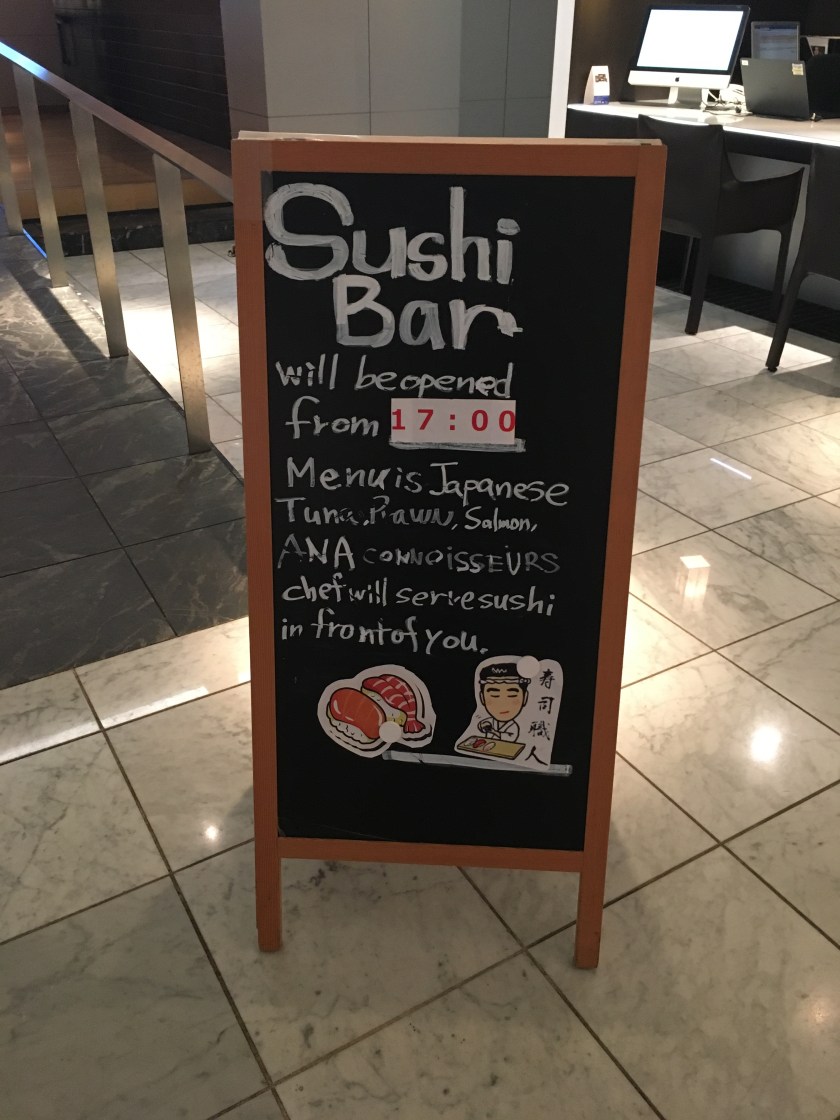 Sushi
Bar
will be opened
from 17:00
Menu is Japanese
Tuna, Prawn, Salmon,
ANA CONNOISSEURS
chef will serve sushi
in front of you.
寿司職人